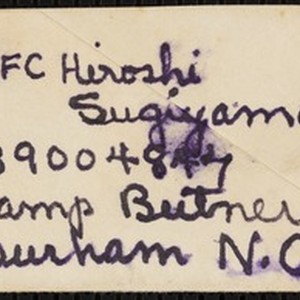 FC Hiroshi
Sugiyama
39004847
amp Butner
urham N.C